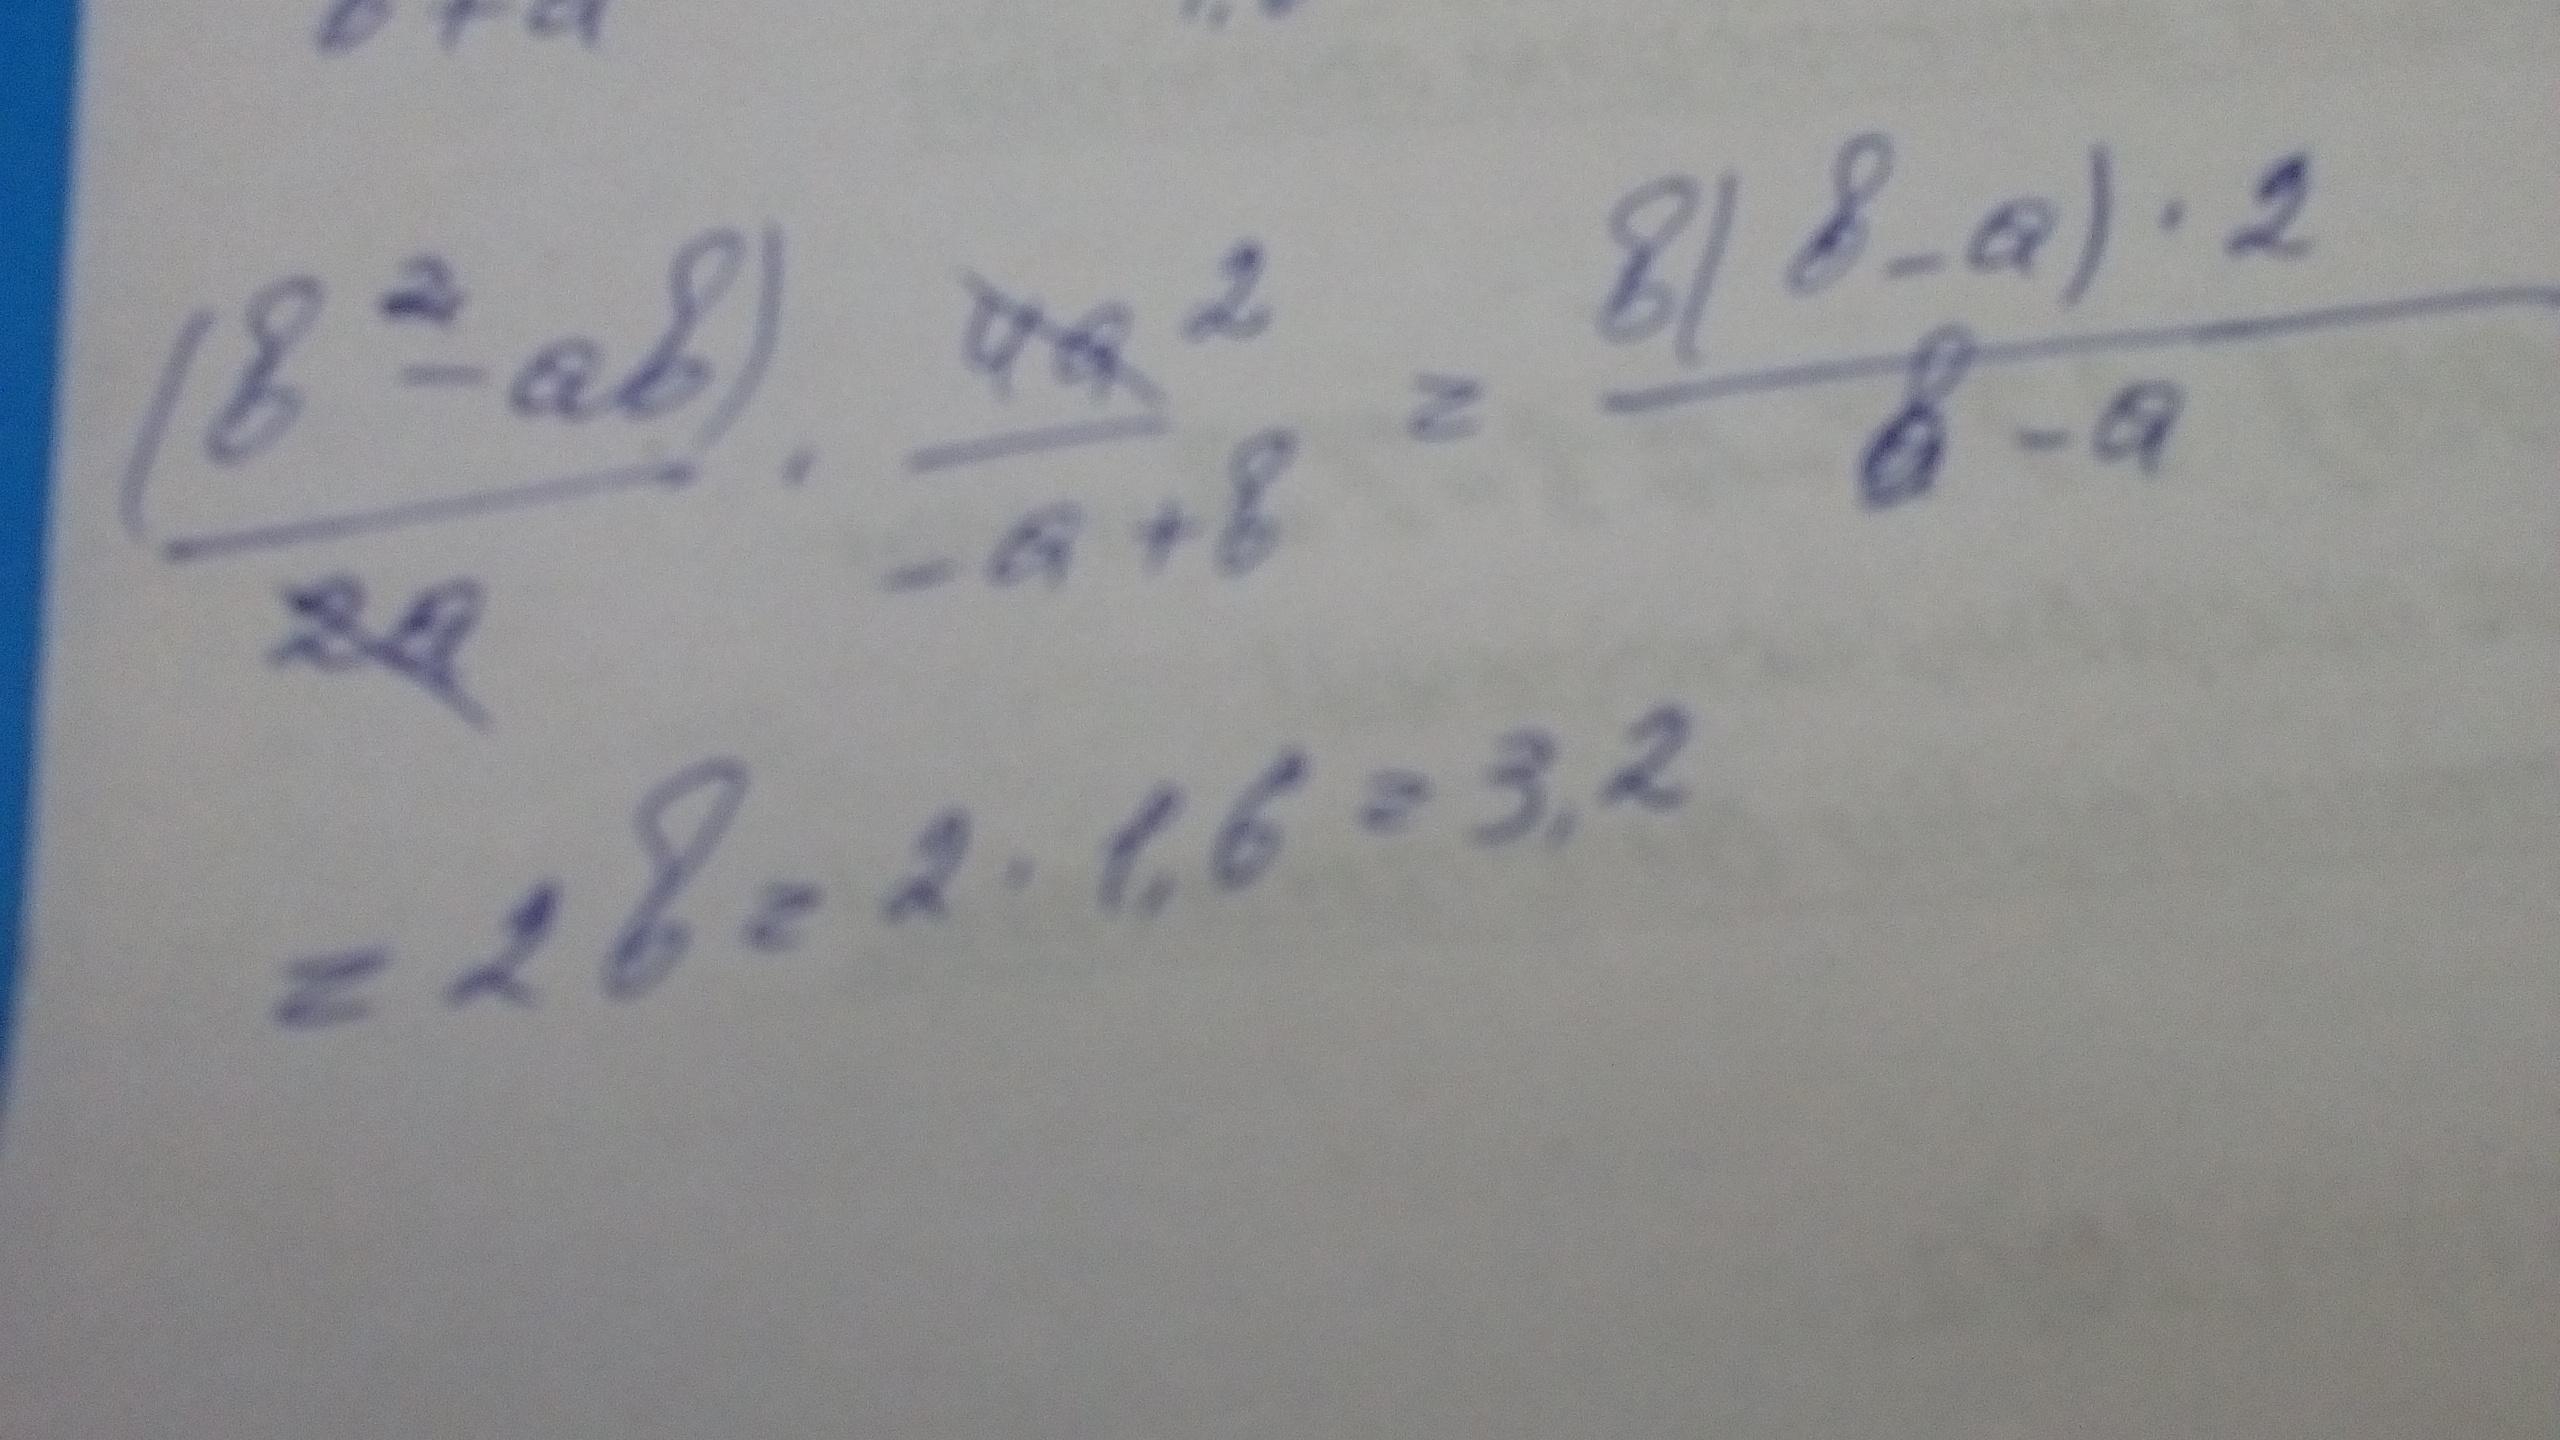 b + a
(b² - ab) / 2a · 4a 2 / -a + b = b(b - a) · 2 / b - a
= 2b = 2 · 1,6 = 3,2